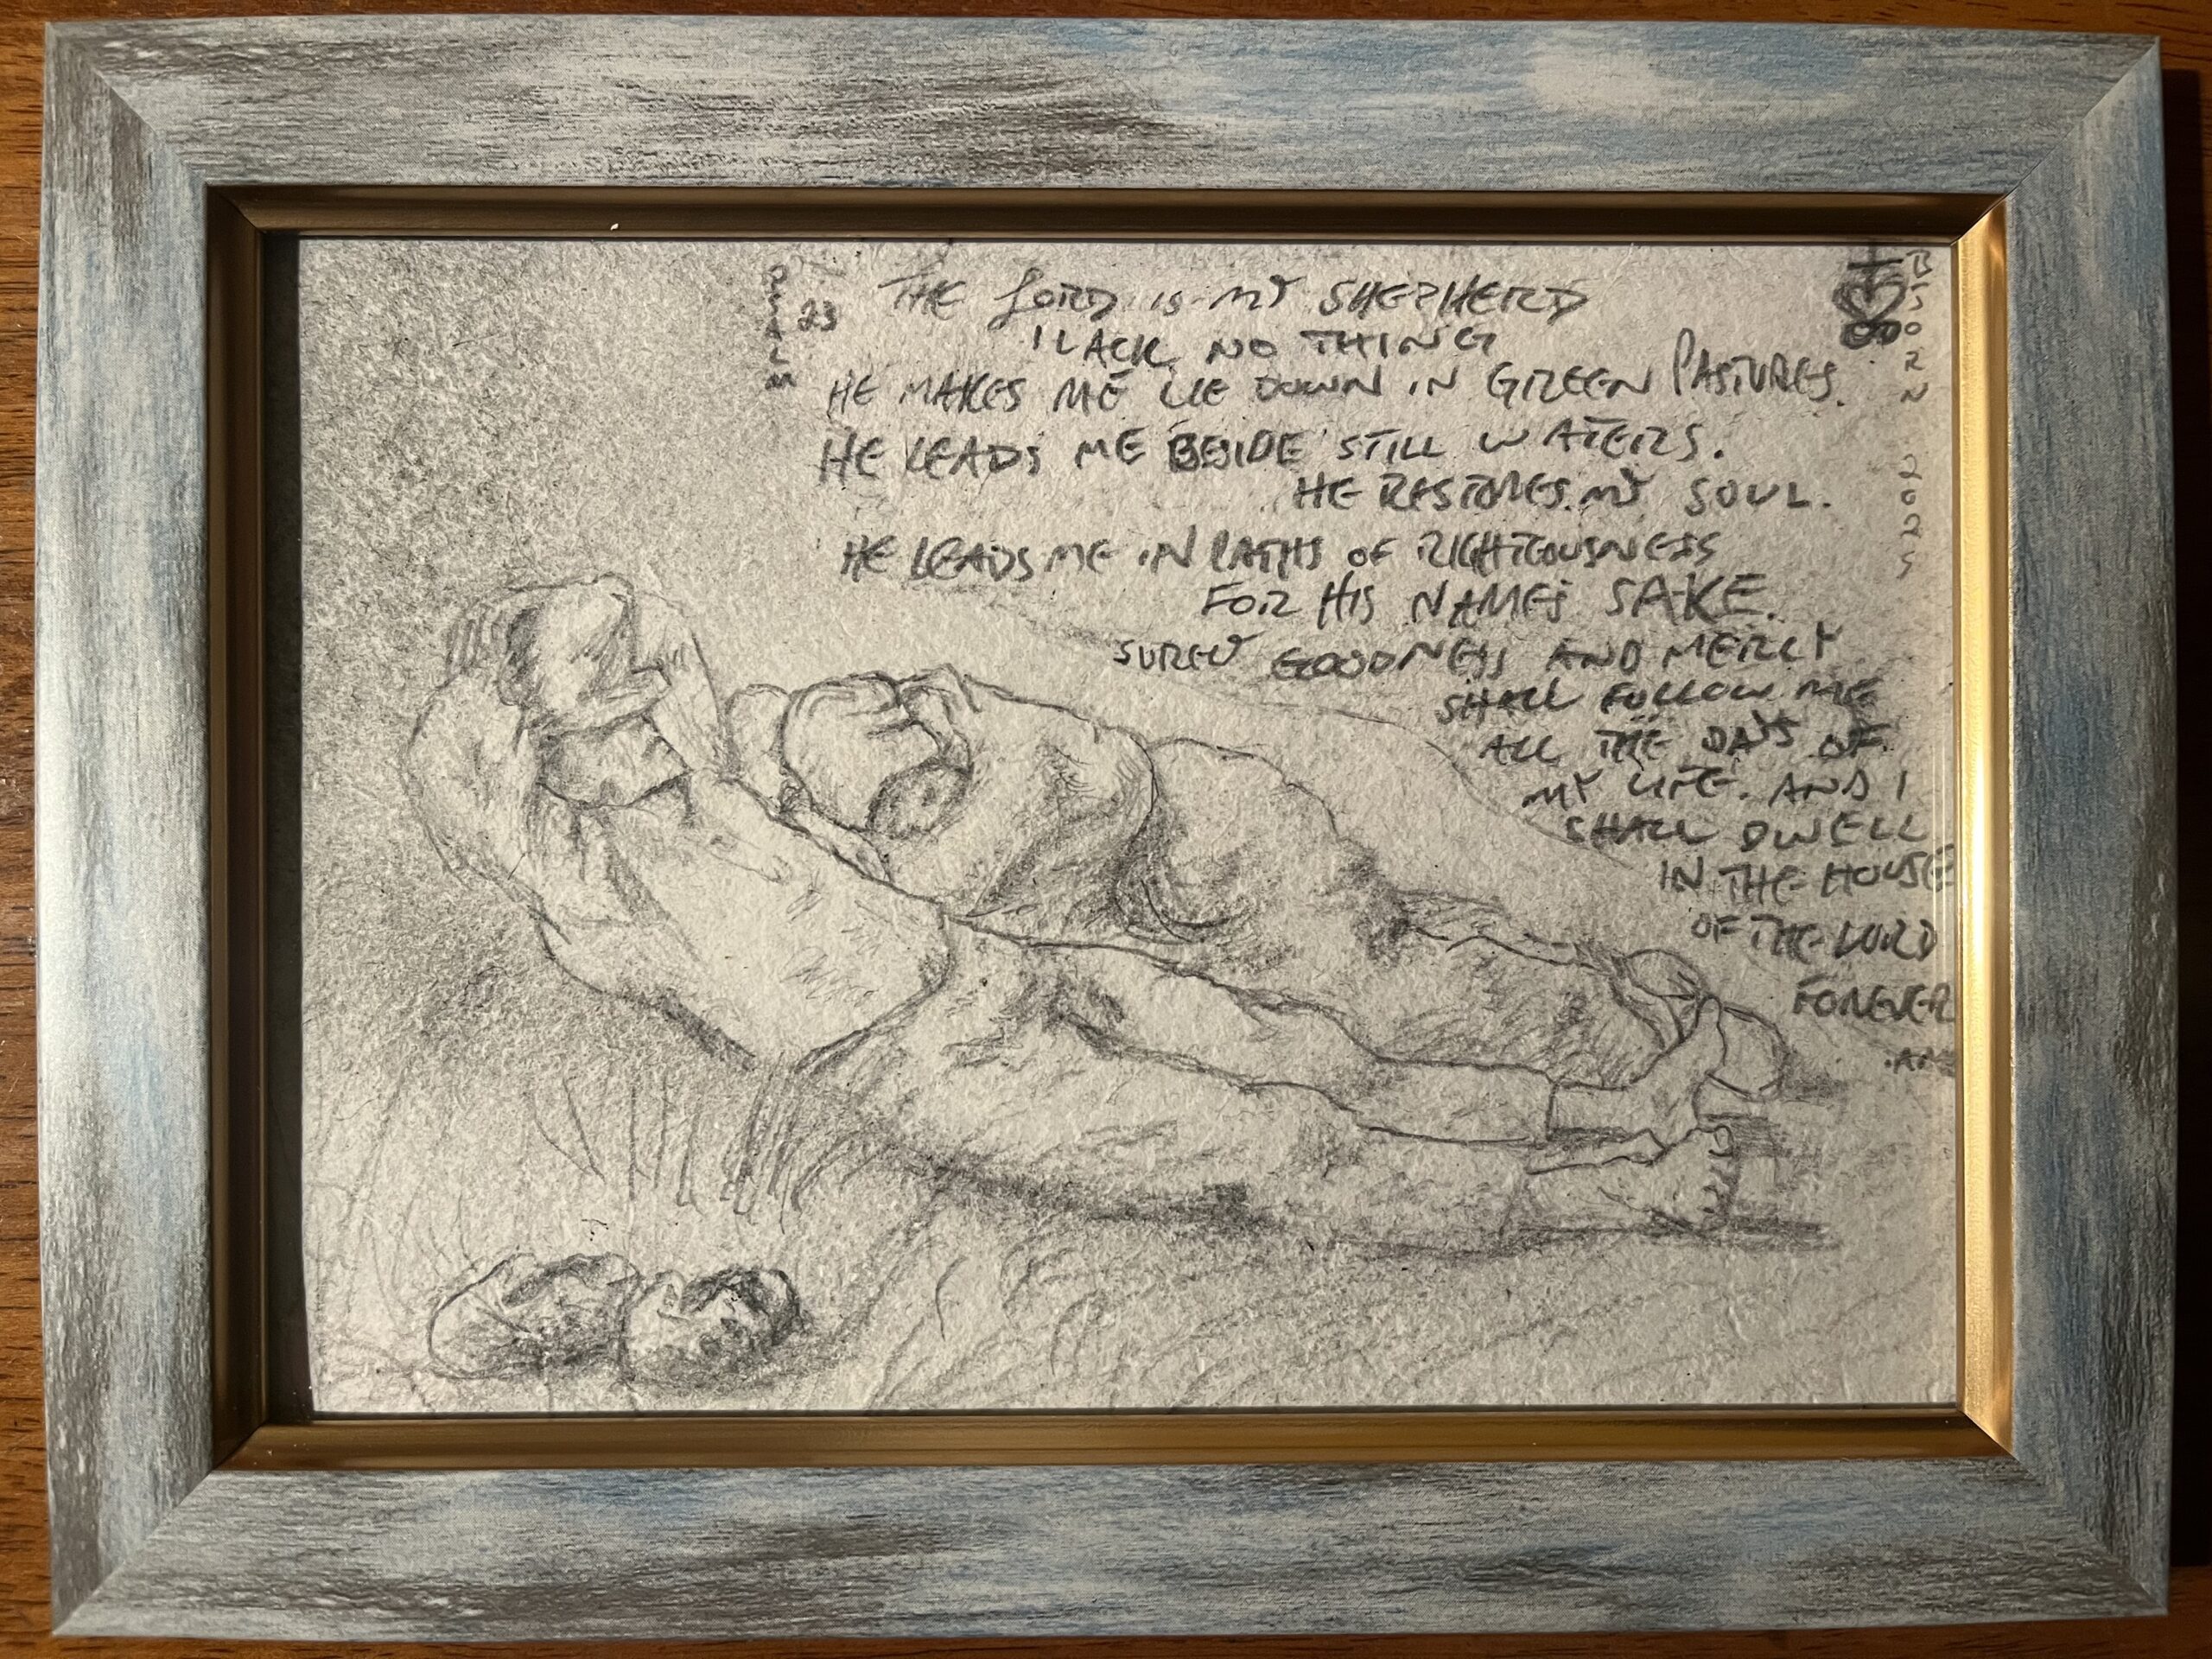 PSALM 23
THE LORD IS MY SHEPHERD
I LACK NO THING
HE MAKES ME LIE DOWN IN GREEN PASTURES.
HE LEADS ME BESIDE STILL WATERS.
HE RESTORES MY SOUL.
HE LEADS ME IN PATHS OF RIGHTEOUSNESS
FOR HIS NAMES SAKE.
SURELY GOODNESS AND MERCY
SHALL FOLLOW ME
ALL THE DAYS OF
MY LIFE. AND I
SHALL DWELL
IN THE HOUSE
OF THE LORD
FOREVER
BJORN 2025